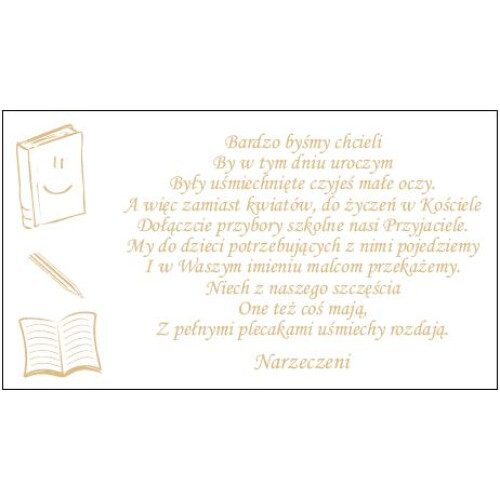 Bardzo byśmy chcieli
By w tym dniu uroczym
Były uśmiechnięte czyjeś małe oczy.
A więc zamiast kwiatów, do życzeń w Kościele
Dołączcie przybory szkolne nasi Przyjaciele.
My do dzieci potrzebujących z nimi pojedziemy
I w Waszym imieniu malcom przekażemy.
Niech z naszego szczęścia
One też coś mają,
Z pełnymi plecakami uśmiechy rozdają.
Narzeczeni